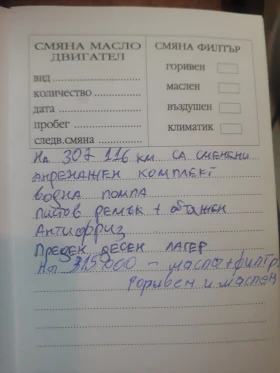 СМЯНА МАСЛО
ДВИГАТЕЛ
вид
количество
дата
пробег
следв.смяна
СМЯНА ФИЛТЪР
горивен
маслен
въздушен
климатик
На 307 116 км са сменени
ангренажен комплект
водна помпа
пистов ремък + обтяжен
Антифриз
Преден десен лагер
На 315000 - масла + филтр
горивен и маслен